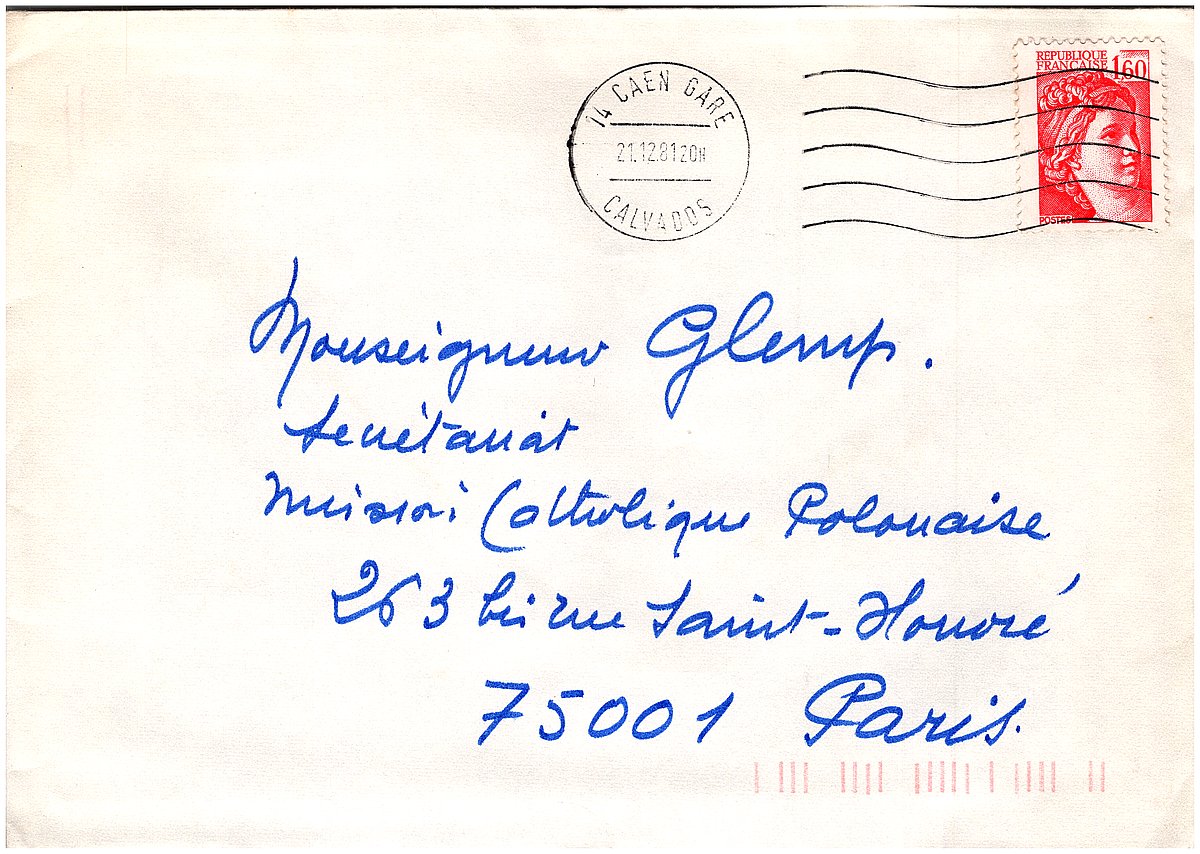 RÉPUBLIQUE
FRANÇAISE 1,60
POSTES
14 CAEN GARE
21.12.81 20H
CALVADOS
Monseigneur Glemp.
Secrétariat
Mission Catholique Polonaise
263 bis rue Saint-Honoré
75001 Paris.